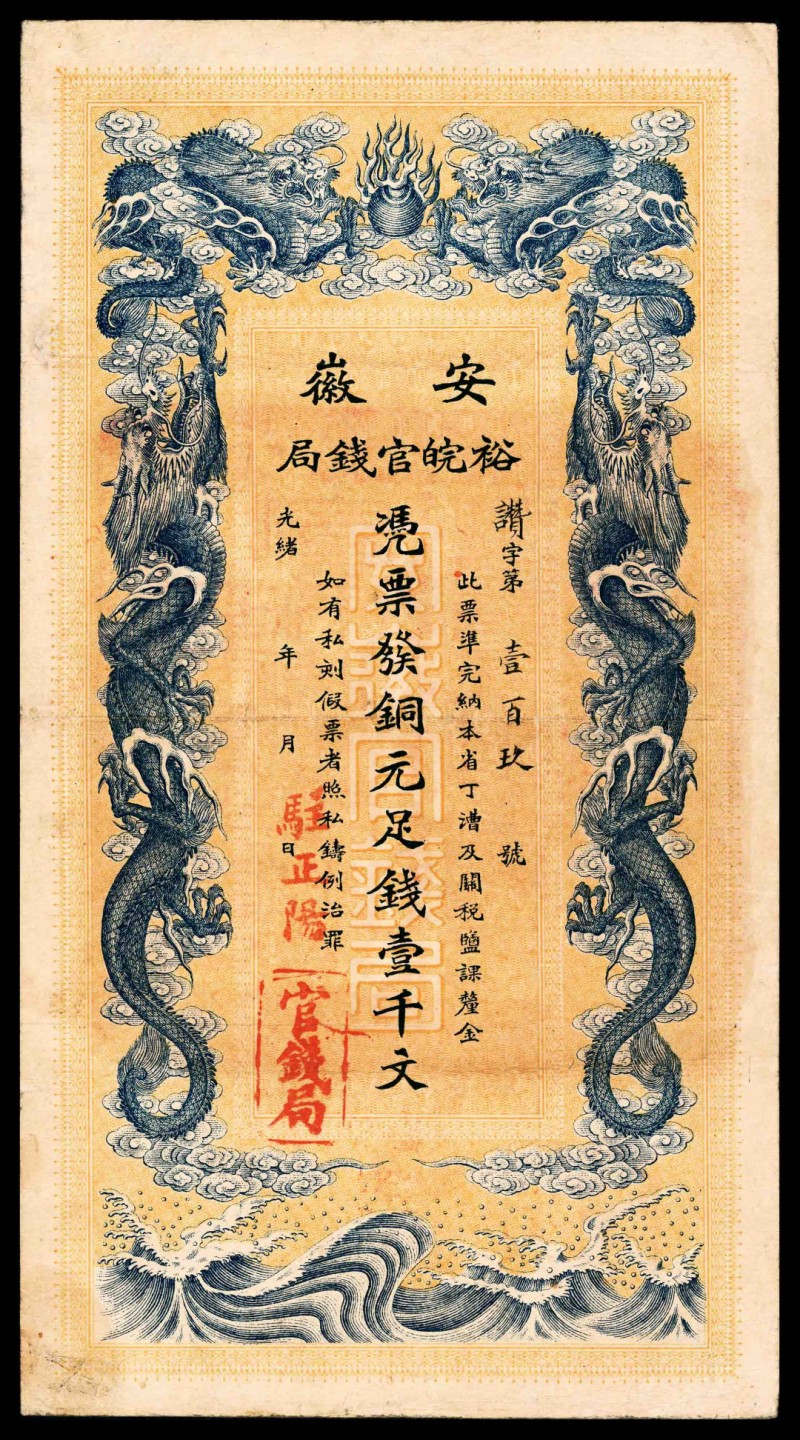 安徽
裕皖官錢局
讚字第壹百玖號
此票準完納本省丁漕及關稅鹽課釐金
憑票發銅元足錢壹千文
如有私刻假票者照私鑄例治罪
光緒年月日
駐正陽
官錢局